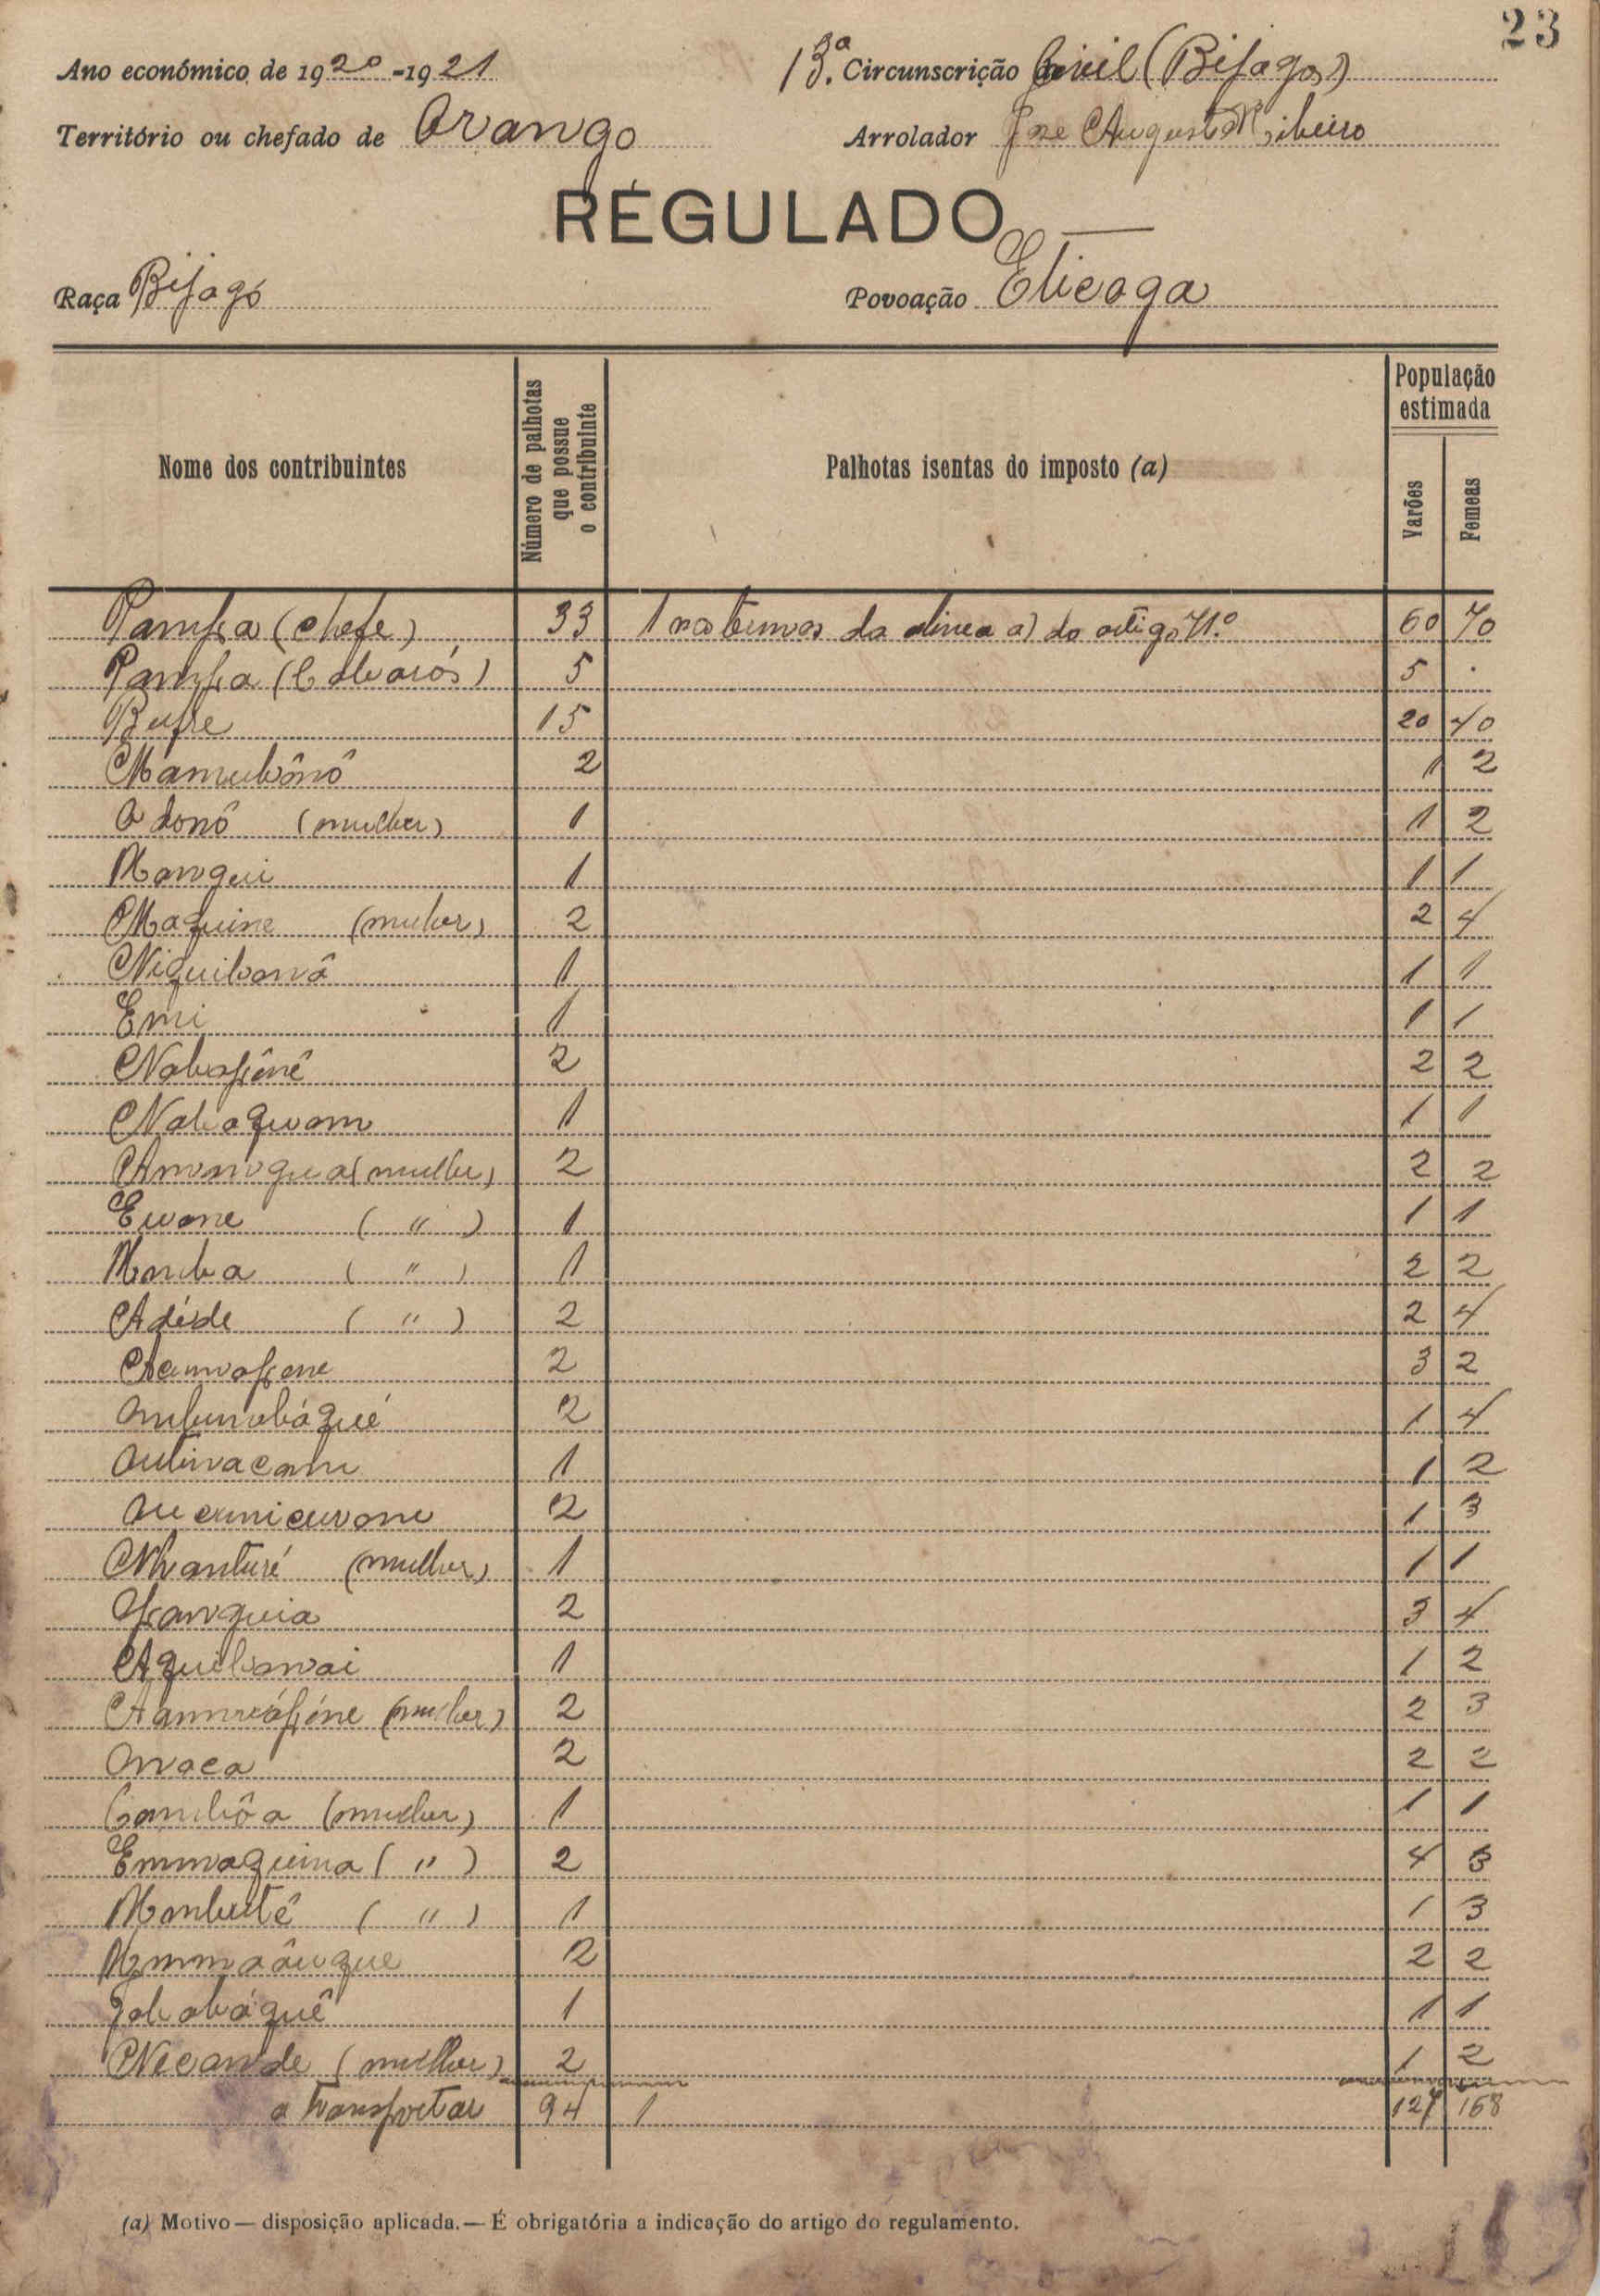 23
Ano económico de 1920-1921
13.ª Circunscrição Civil (Bijagos)
Território ou chefado de Orango
Arrolador José Augusto Ribeiro
RÉGULADO
Raça Bijagó
Povoação Eticoga
Nome dos contribuintes
Número de palhotas que possue o contribuinte
Palhotas isentas do imposto (a)
População estimada
Varões
Femeas
Pampa (chefe) 33 1 nos termos da alinea a) do artigo 71.º 60 70
Pampa 5 5 .
Bupe 15 20 40
Mamubônô 2 1 2
Odonô (mulher) 1 1 2
Nangui 1 1 1
Maquine (mulher) 2 2 4
Niquibanô 1 1 1
Emi 1 1 1
Nobopênê 2 2 2
Nobaquam 1 1 1
(mulher) 2 2 2
Evone ( " ) 1 1 1
( " ) 1 2 2
Adéde ( " ) 2 2 4
2 3 2
2 1 4
1 1 2
2 1 3
Nhanturé (mulher) 1 1 1
2 3 4
Aquibanai 1 1 2
(mulher) 2 2 3
Onoca 2 2 2
Cambôa (mulher) 1 1 1
Emmaquina ( " ) 2 4 3
( " ) 1 1 3
2 2 2
1 1 1
Necande (mulher) 2 1 2
a transportar 94 1 127 168
(a) Motivo — disposição aplicada. — É obrigatória a indicação do artigo do regulamento.